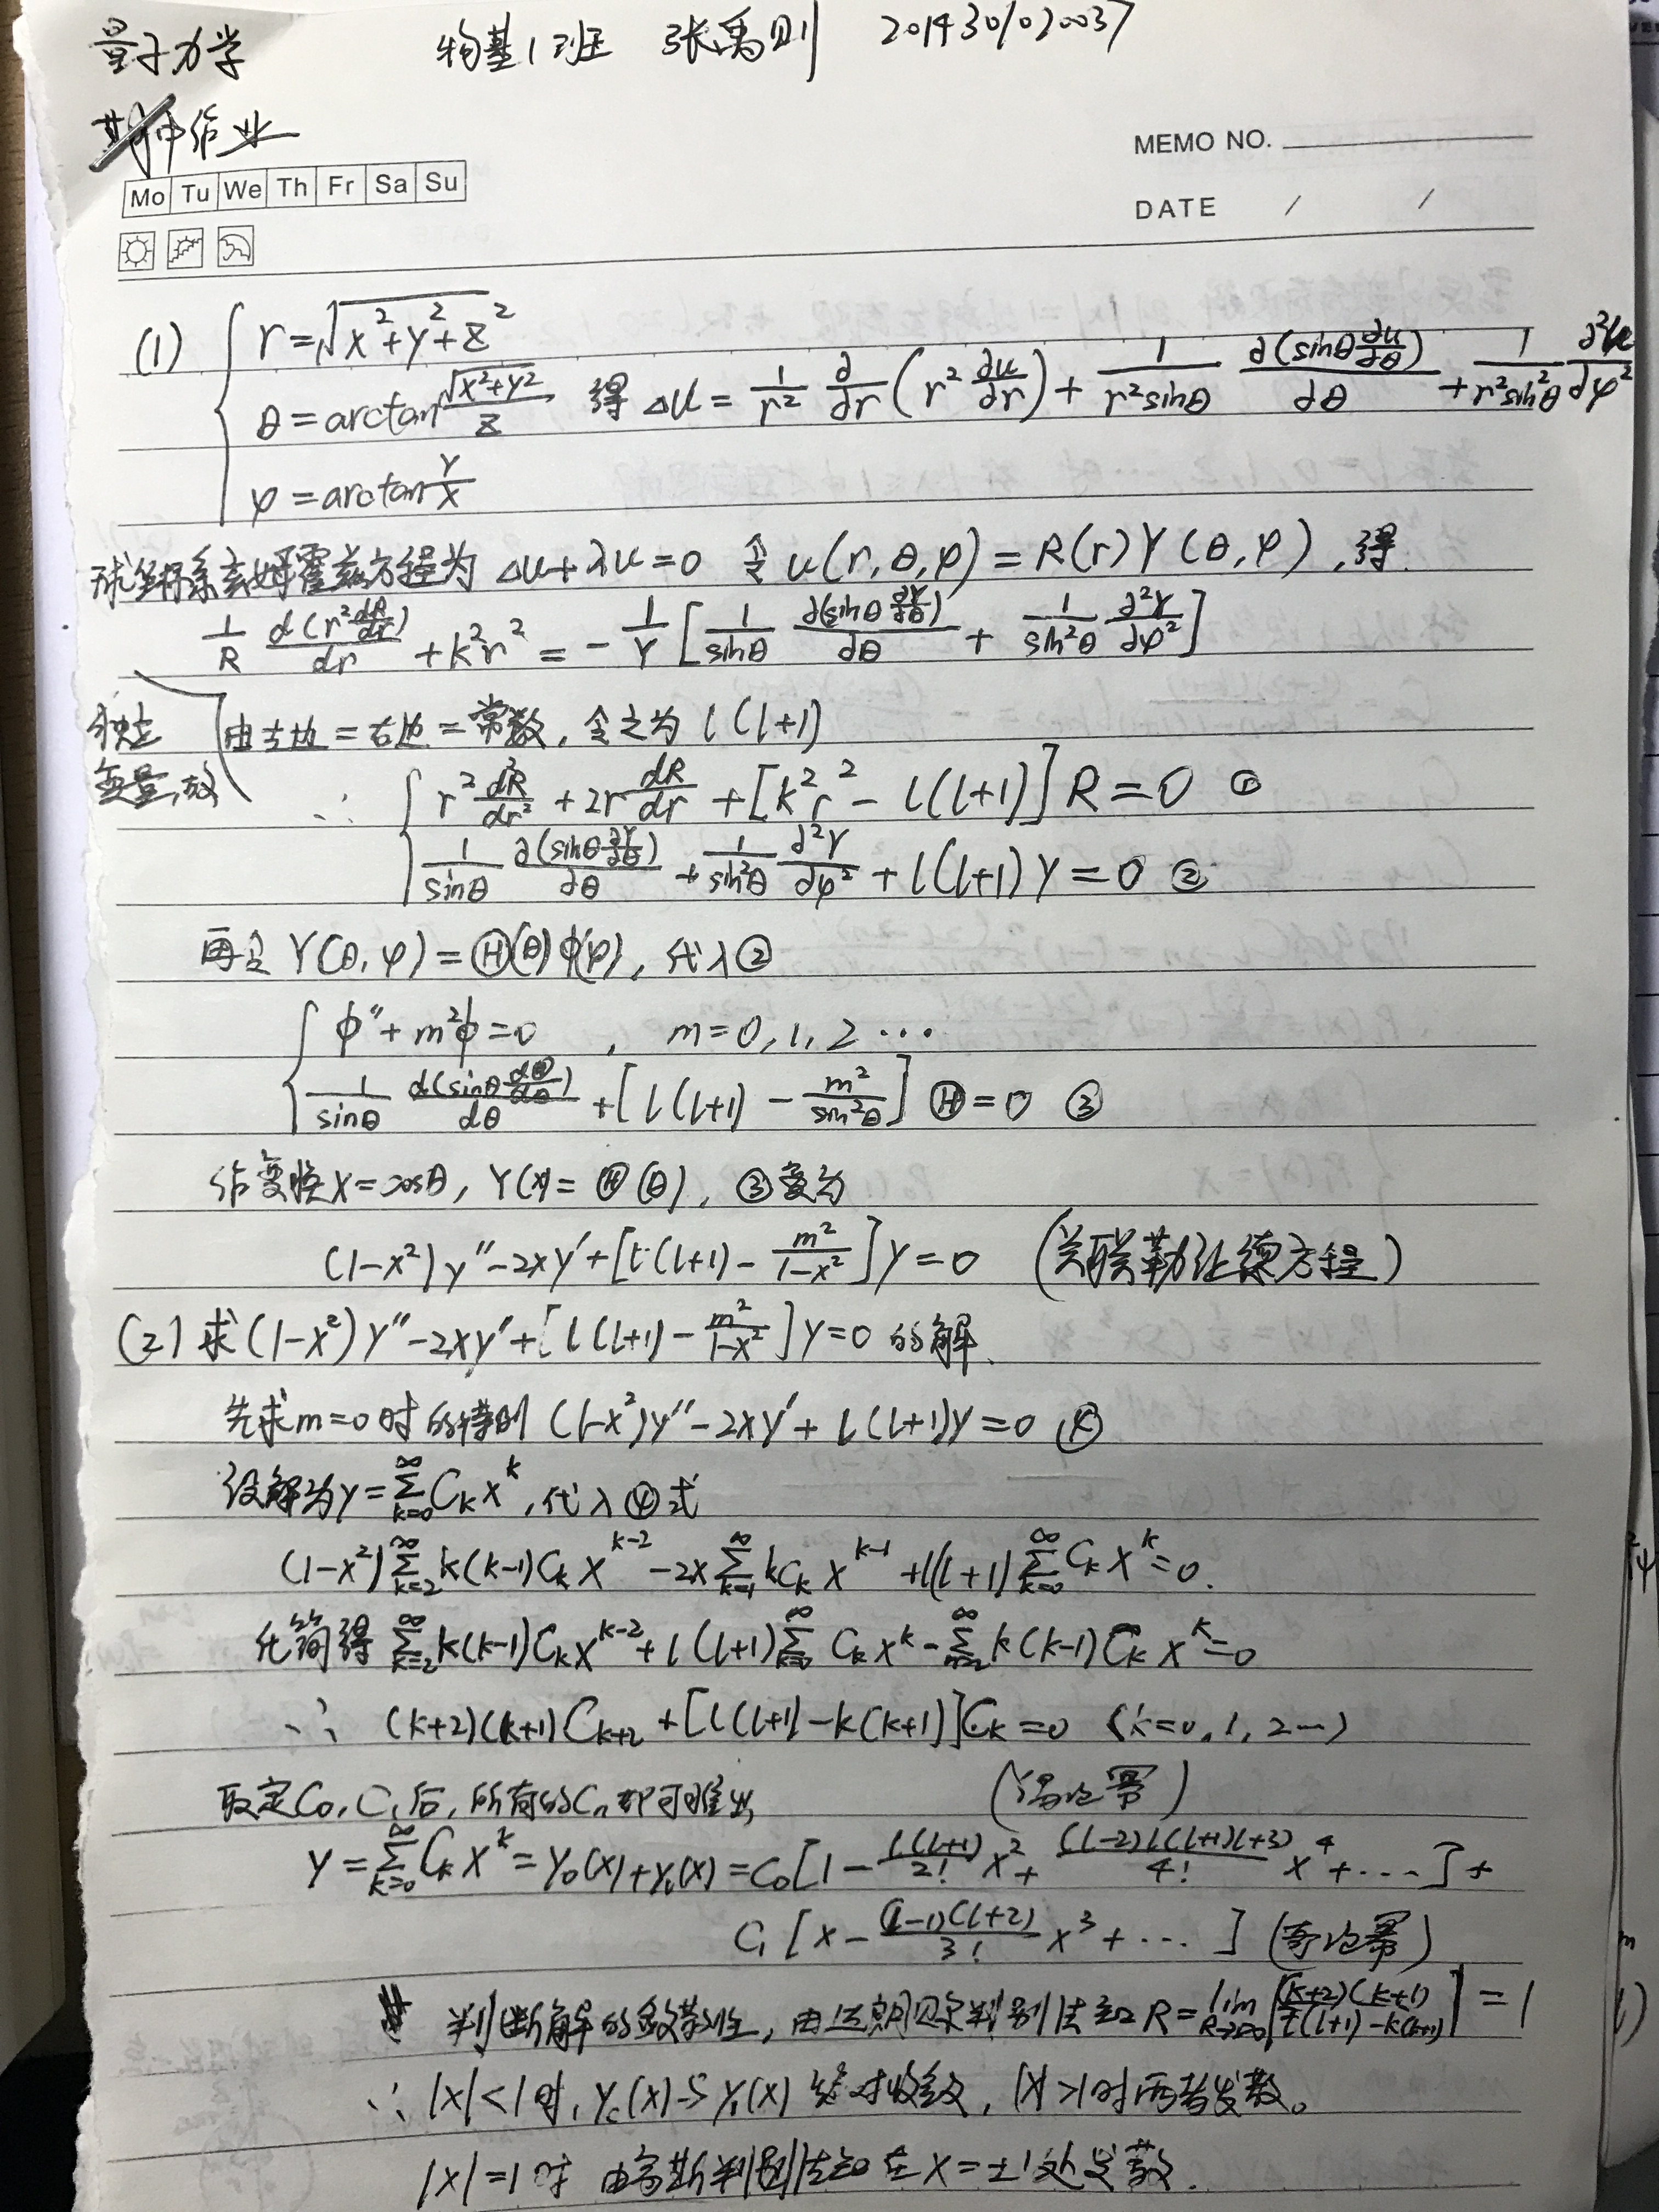 量子力学 物基1班 张禹则 2014301020037
期中作业
MEMO NO.
Mo Tu We Th Fr Sa Su
DATE / /
(1) { r = √(x²+y²+z²)
θ = arctan √(x²+y²)/z 得 Δu = 1/r² ∂/∂r (r² ∂u/∂r) + 1/(r² sinθ) ∂(sinθ ∂u/∂θ)/∂θ + 1/(r² sin²θ) ∂²u/∂φ²
φ = arctan y/x
球坐标系亥姆霍兹方程为 Δu+λu=0 令 u(r,θ,φ) = R(r)Y(θ,φ),得
1/R d(r² dR/dr)/dr + k²r² = -1/Y [1/sinθ ∂(sinθ ∂Y/∂θ)/∂θ + 1/sin²θ ∂²Y/∂φ²]
独立变量,故 由左边=右边=常数,令之为 l(l+1)
∴ { r² d²R/dr² + 2r dR/dr + [k²r² - l(l+1)]R = 0 ①
1/sinθ ∂(sinθ ∂Y/∂θ)/∂θ + 1/sin²θ ∂²Y/∂φ² + l(l+1)Y = 0 ②
再令 Y(θ,φ) = Ⓗ(θ)ϕ(φ), 代入②
{ ϕ″+m²ϕ=0 , m=0,1,2 ⋯
1/sinθ d(sinθ dⒽ/dθ)/dθ + [l(l+1) - m²/sin²θ] Ⓗ=0 ③
作变换 x=cosθ, Y(x)=Ⓗ(θ), ③变为
(1-x²)y″-2xy′+[l(l+1) - m²/(1-x²)]y=0 (关联勒让德方程)
(2) 求(1-x²)y″-2xy′+[l(l+1) - m²/(1-x²)]y=0 的解
先求m=0时的特例 (1-x²)y″-2xy′+l(l+1)y=0 ④
设解为y=∑_{k=0}^{∞} C_k x^k,代入④式
(1-x²)∑_{k=2}^{∞} k(k-1)C_k x^{k-2} - 2x∑_{k=1}^{∞} kC_k x^{k-1} + l(l+1)∑_{k=0}^{∞} C_k x^k=0.
化简得 ∑_{k=2}^{∞} k(k-1)C_k x^{k-2} + l(l+1)∑_{k=0}^{∞} C_k x^k - ∑ k(k-1)C_k x^k=0
∴ (k+2)(k+1)C_{k+2} + [l(l+1)-k(k+1)]C_k=0 (k=0,1,2⋯)
取定C₀,C₁后,所有的C_n都可推出 (偶次幂)
y=∑_{k=0}^{∞} C_k x^k=y₀(x)+y₁(x)=C₀[1 - l(l+1)/2! x² + (l-2)l(l+1)(l+3)/4! x⁴+⋯]+
C₁[x - (l-1)(l+2)/3! x³+⋯] (奇次幂)
判断解的敛散性,由达朗贝尔判别法知R=lim_{k→∞}|(k+2)(k+1)/(l(l+1)-k(k+1))|=1
∴ |x|<1时,y₀(x)与y₁(x)绝对收敛,|x|>1时两者发散。
|x|=1时 由高斯判别法知在x=±1处发散.